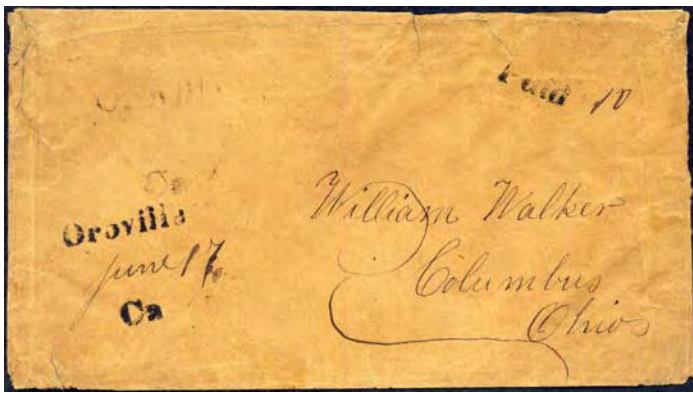 Paid 10
Oroville
Ca
Oroville
June 17
Ca
William Walker
Columbus
Ohio